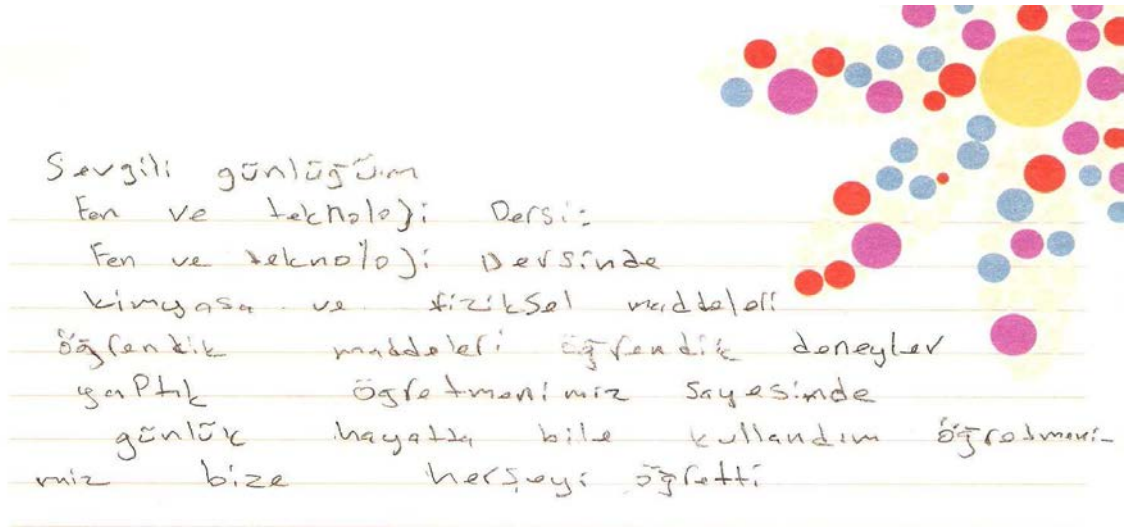 Sevgili günlüğüm
Fen ve teknoloji Dersi:
Fen ve teknoloji Dersinde
kimyasa ve fiziksel maddeleri
öğrendik maddeleri öğrendik deneyler
yaPtık ögretmenimiz sayesinde
günlük hayatta bile kullandım öğretmeni-
miz bize herşeyi öğretti